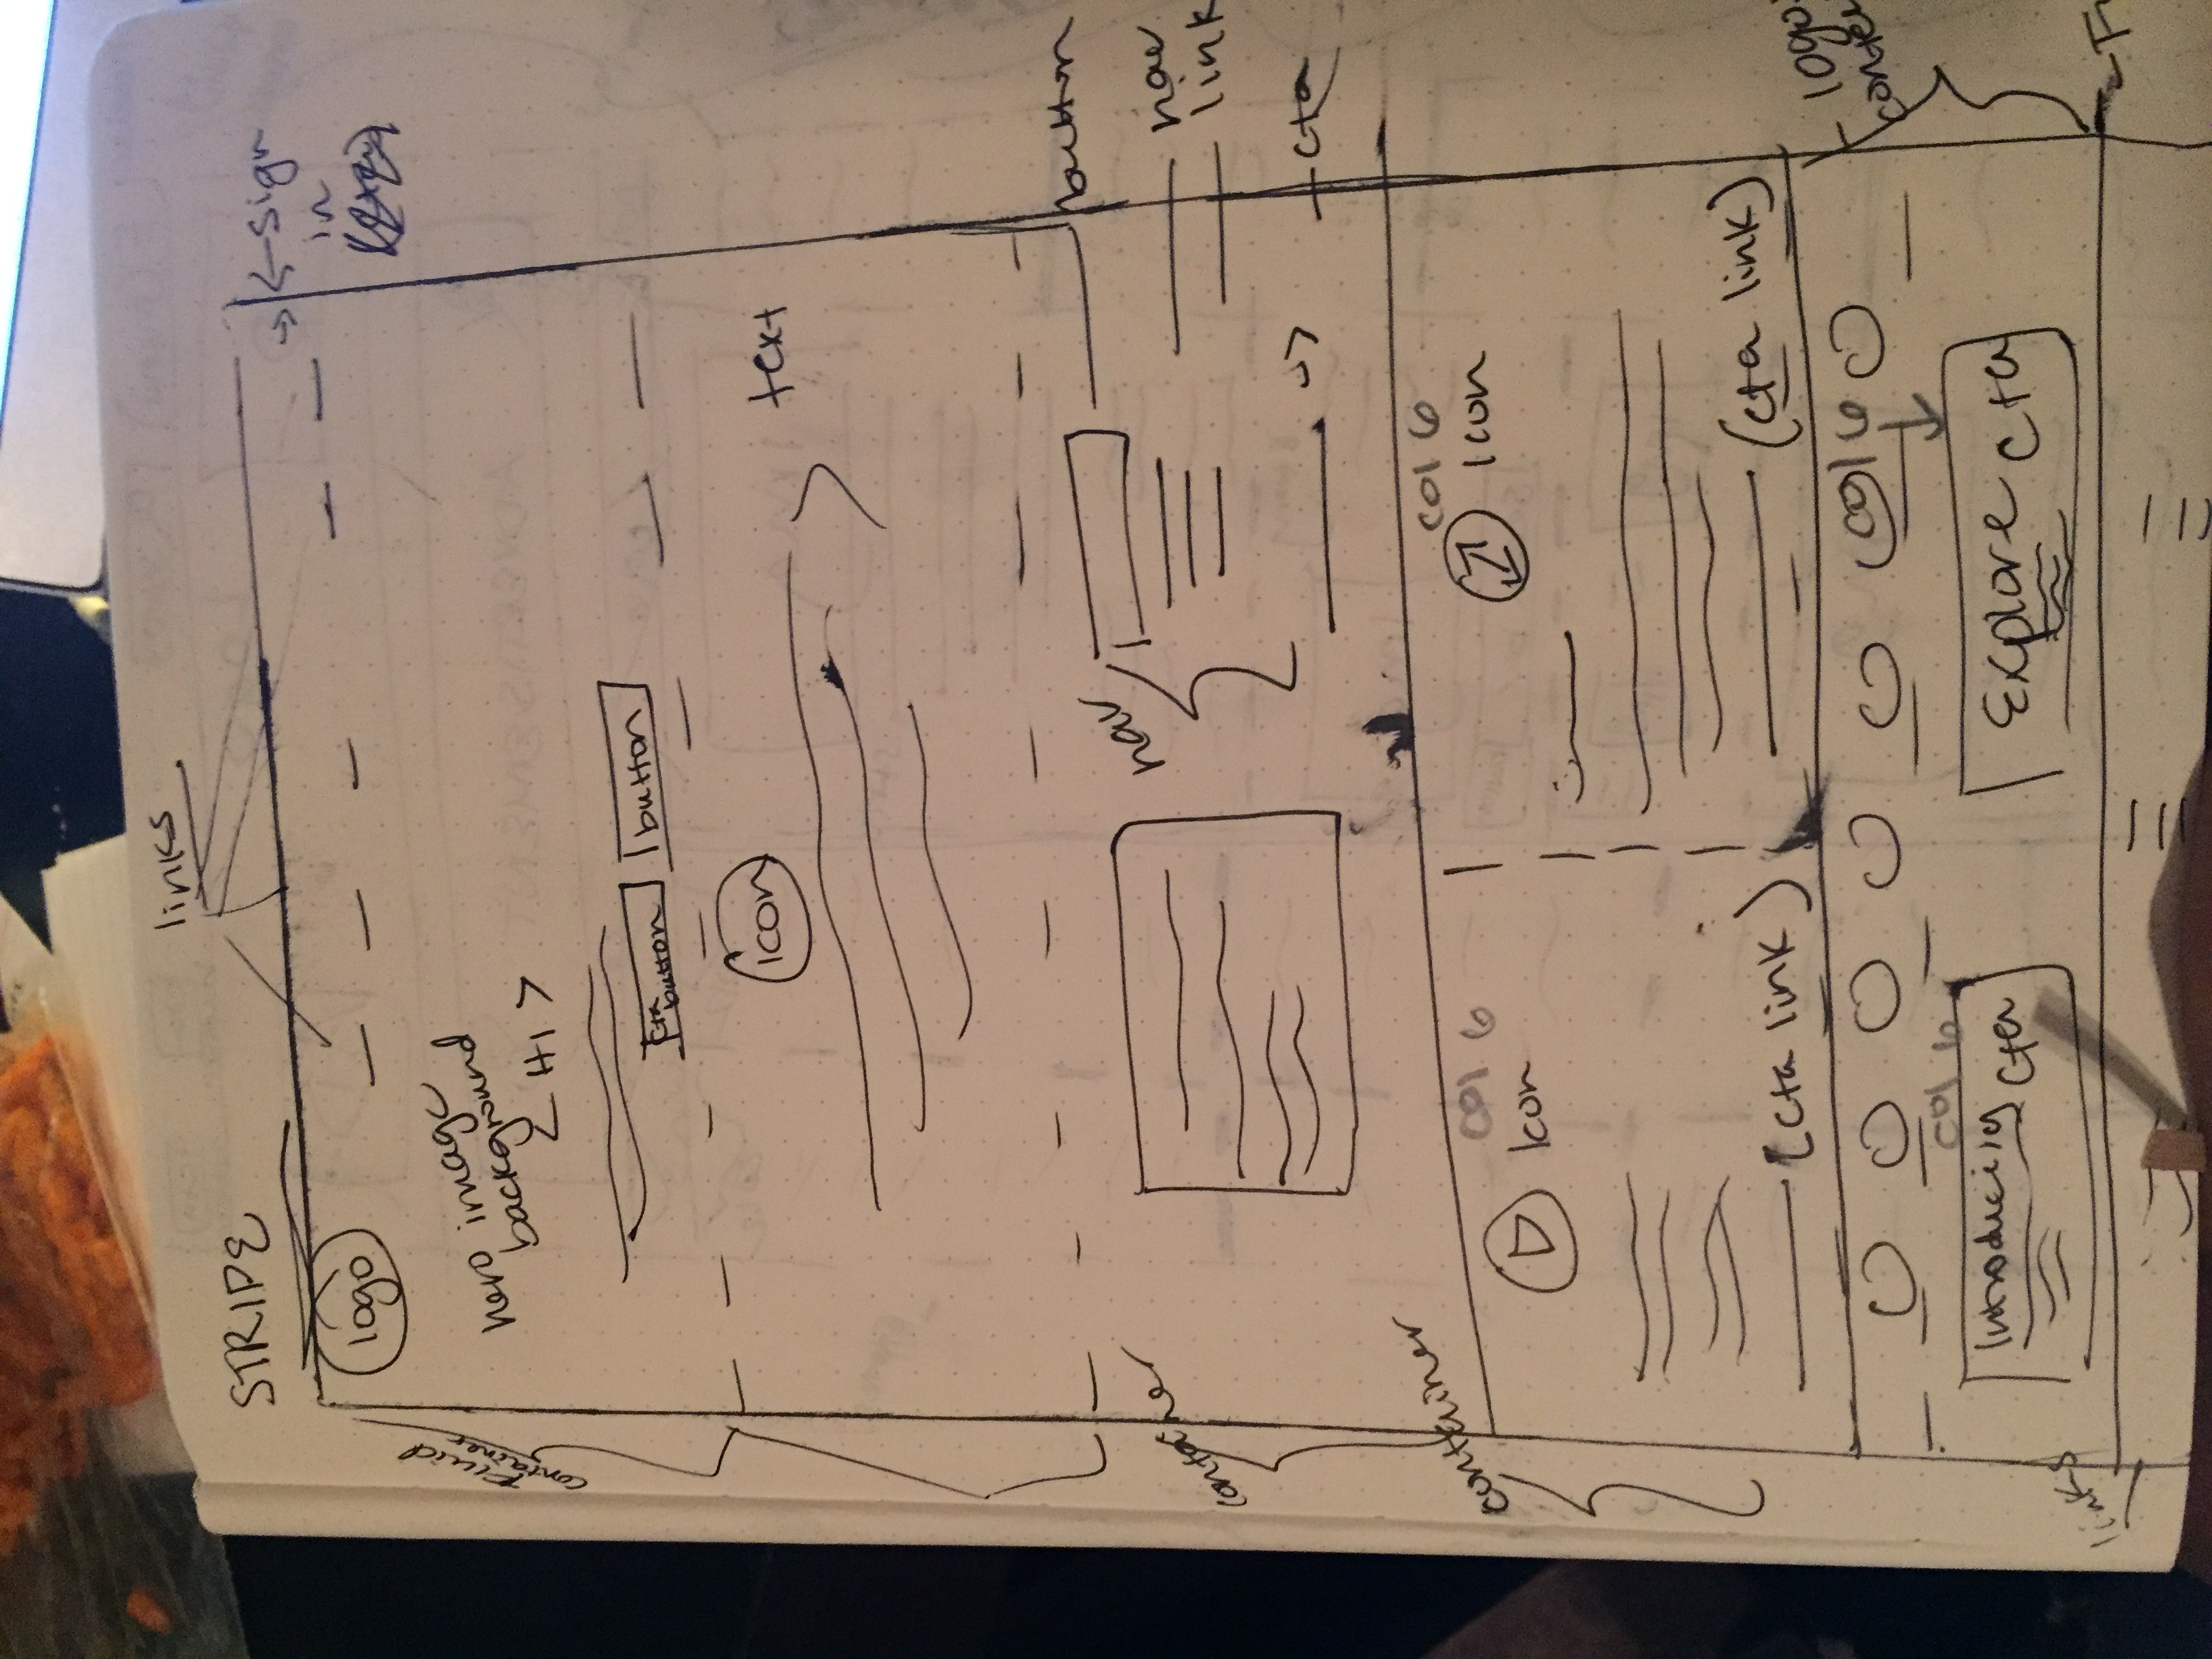 links
STRIPE
sign
in
logo
Fluid
container
hero image
background
< H1 >
cta
button
button
icon
text
nav
button
nav
link
container
cta
container
col 6
col 6
Icon
Icon
(cta link)
(cta link)
logo
col 6
col 6
Introducing
cta
Explore cta
links